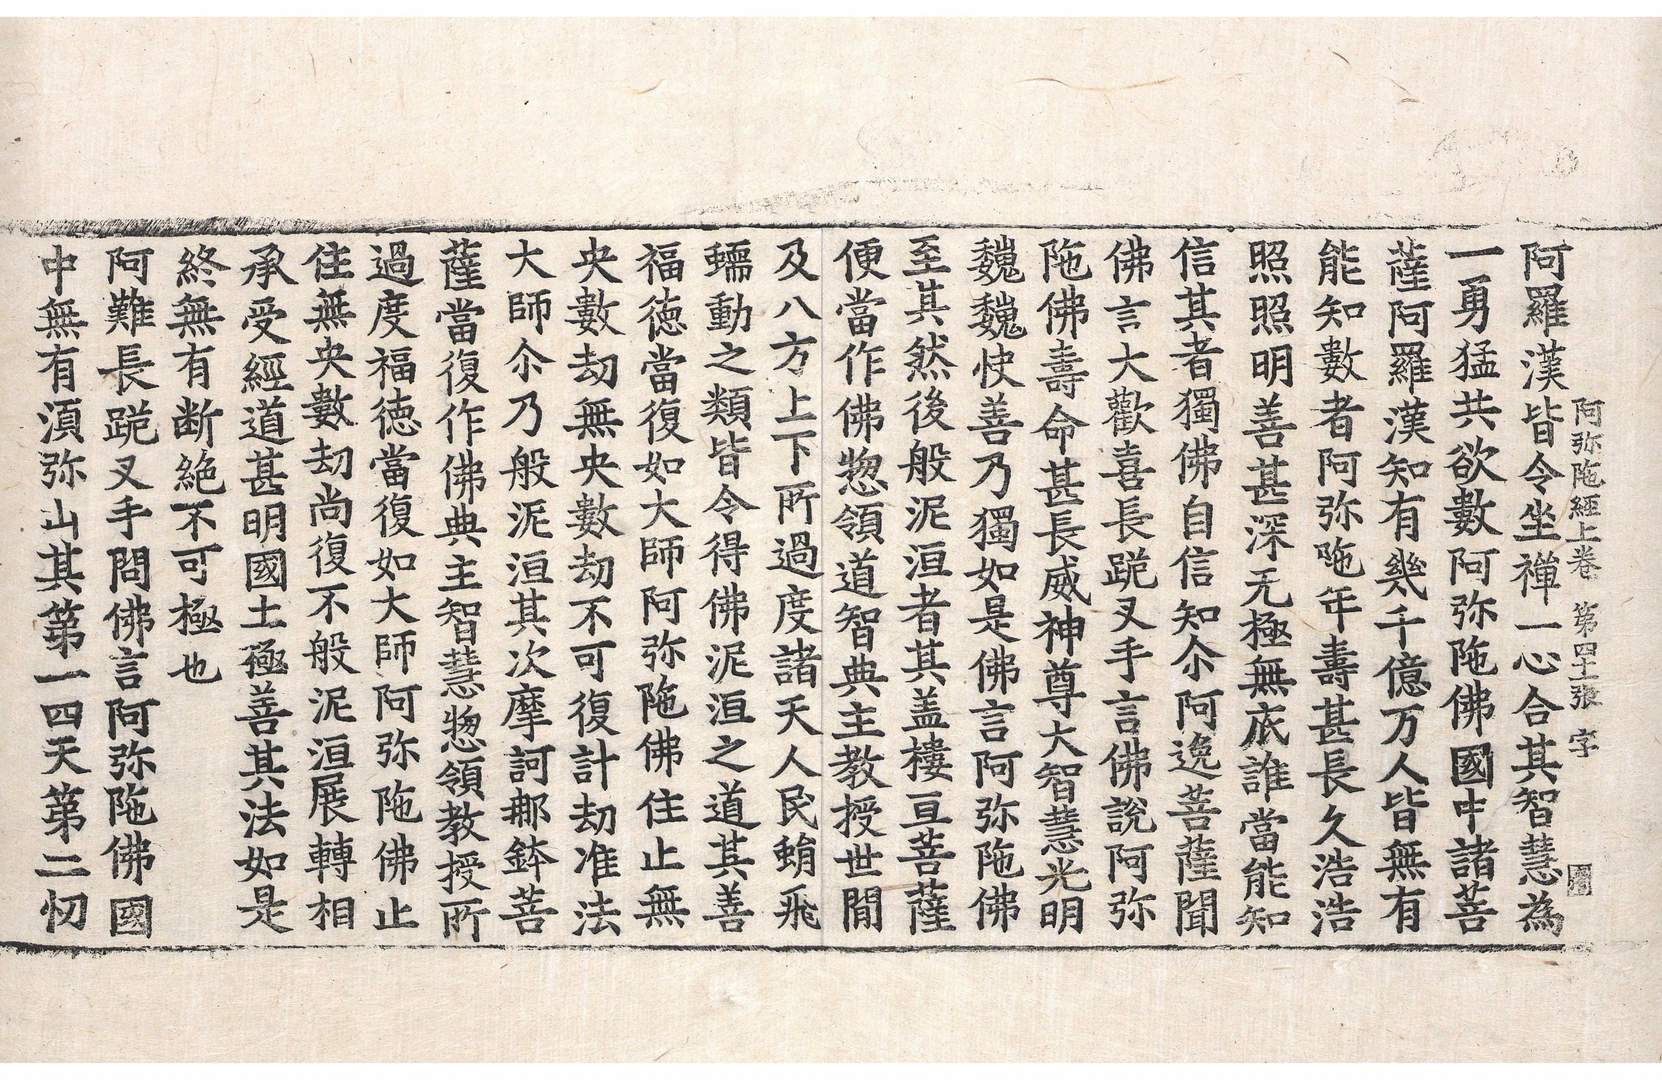 阿羅漢皆令坐禪一心合其智慧為
一勇猛共欲數阿弥陁佛國中諸菩
薩阿羅漢知有幾千億万人皆無有
能知數者阿弥陁年壽甚長久浩浩
照照明善甚深无極無底誰當能知
信其者獨佛自信知尒阿逸菩薩聞
佛言大歡喜長跪叉手言佛說阿弥
陁佛壽命甚長威神尊大智慧光明
巍巍快善乃獨如是佛言阿弥陁佛
至其然後般泥洹者其盖樓亘菩薩
便當作佛惣領道智典主教授世閒
及八方上下所過度諸天人民蜎飛
蠕動之類皆令得佛泥洹之道其善
福德當復如大師阿弥陁佛住止無
央數劫無央數劫不可復計劫准法
大師尒乃般泥洹其次摩訶那鉢菩
薩當復作佛典主智慧惣領教授所
過度福德當復如大師阿弥陁佛止
住無央數劫尚復不般泥洹展轉相
承受經道甚明國土極善其法如是
終無有断絶不可極也
阿難長跪叉手問佛言阿弥陁佛國
中無有湏弥山其第一四天第二忉
阿弥陁經上卷 第四十張 字